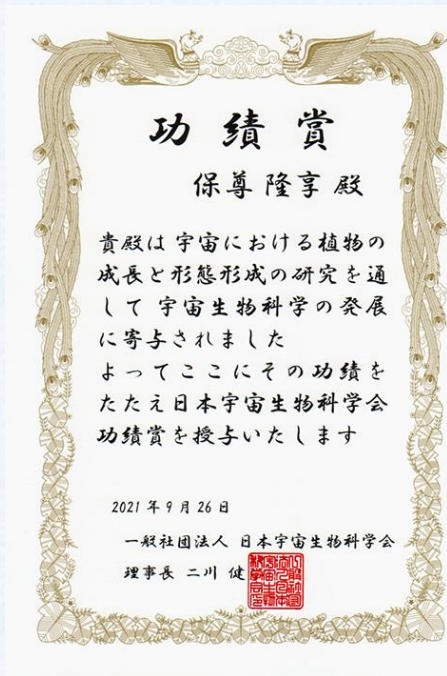 功績賞
保尊隆享殿
貴殿は宇宙における植物の
成長と形態形成の研究を通
して宇宙生物科学の発展
に寄与されました
よってここにその功績を
たたえ日本宇宙生物科学会
功績賞を授与いたします
2021年9月26日
一般社団法人 日本宇宙生物科学会
理事長 二川 健